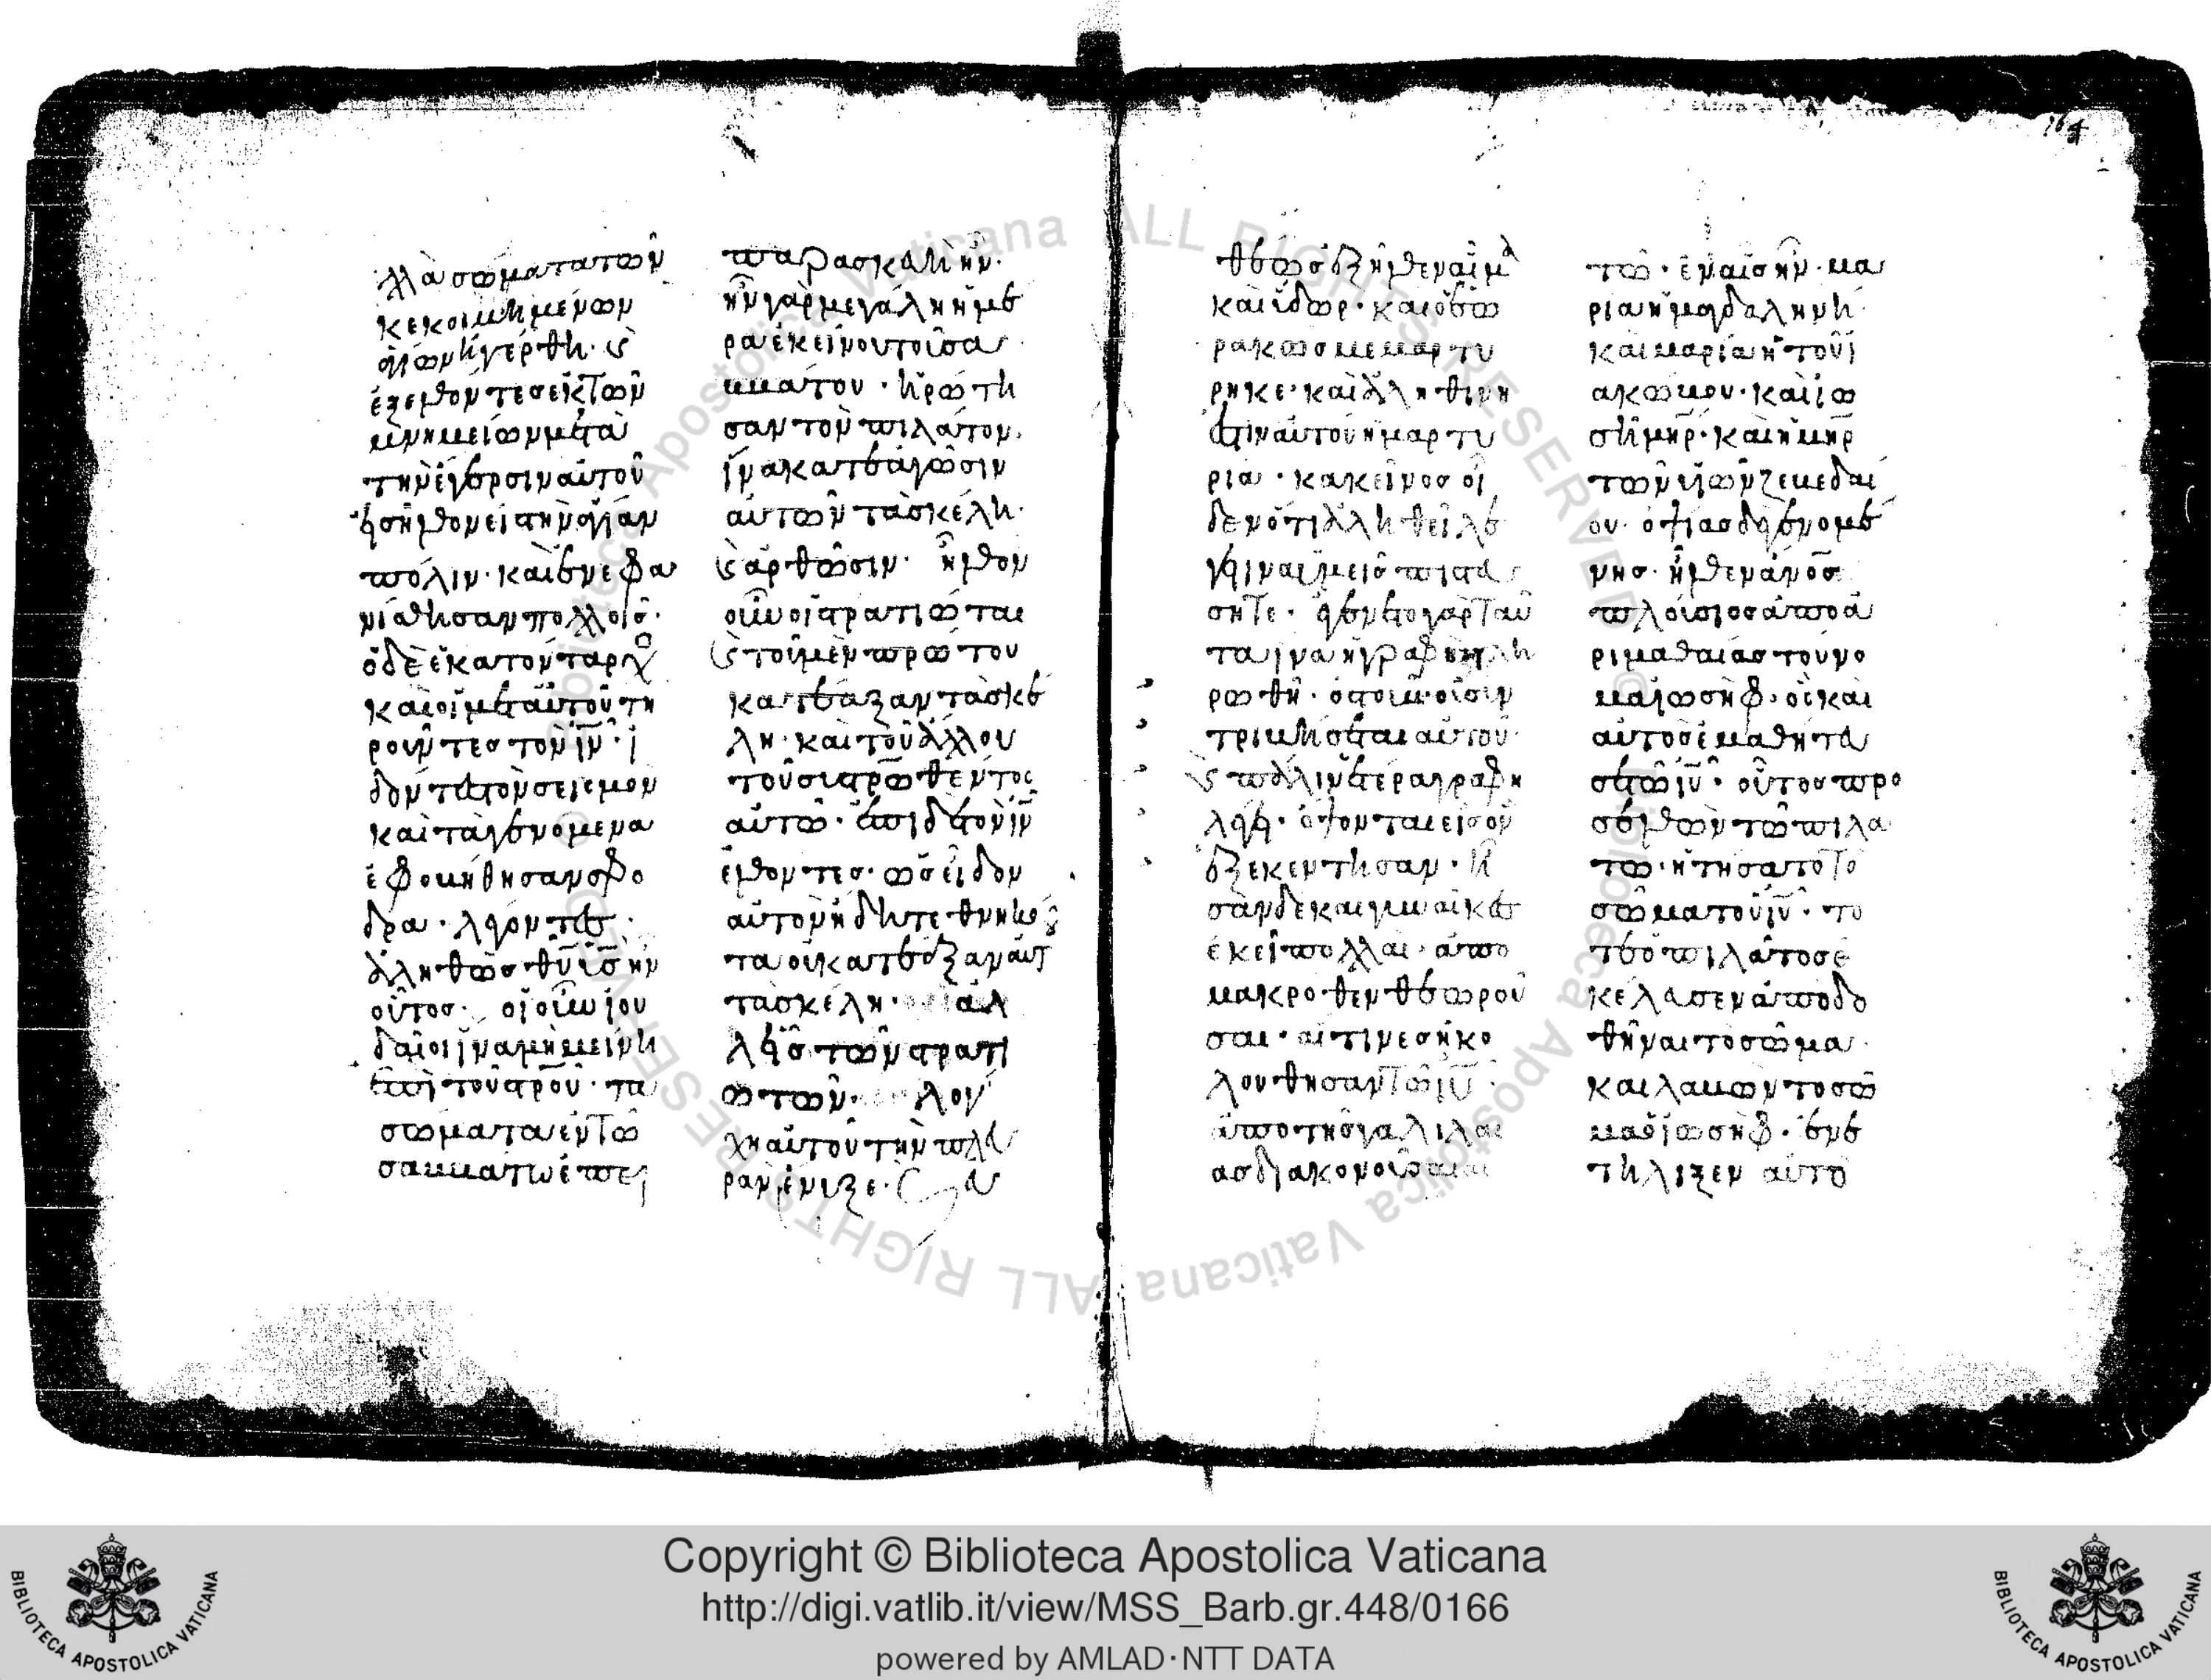 164
λλὰ σώματα τῶν
κεκοιμημένων
ἁγίων ἠγέρθη· ϗ
ἐξελθόντες ἐκ τῶν
μνημείων μετὰ
τὴν ἔγερσιν αὐτοῦ
εἰσῆλθον εἰς τὴν ἁγίαν
πόλιν· καὶ ἐνεφα
νίσθησαν πολλοῖς·
ὁ δὲ ἑκατόνταρχο
καὶ οἱ μετ αὐτοῦ τη
ροῦντες τὸν ιν· ἰ
δόντες τὸν σεισμὸν
καὶ τὰ γενόμενα
ἐφοβήθησαν σφό
δρα· λέγοντες·
ἀληθῶς θυ υς ἦν
οὗτος· οἱ οὖν ἰου
δαῖοι ἵνα μὴ μείνη
ἐπὶ τοῦ στρου· τὰ
σώματα ἐν τῶ
σαββάτω ἐπεὶ
παρασκευὴ ἦν·
ἦν γὰρ μεγάλη ἡ ἡμέ
ρα ἐκείνου τοῦ σα
ββάτου· ἠρώτη
σαν τὸν πιλάτον·
ἵνα κατεάγωσιν
αὐτῶν τὰ σκέλη·
ϗ ἀρθῶσιν· ἦλθον
οὖν οἱ στρατιῶται
ϗ τοῦ μὲν πρώτου
κατέαξαν τὰ σκέ
λη· καὶ τοῦ ἄλλου
τοῦ συστρωθέντος
αὐτῶ· ἐπὶ δὲ τὸν ιν
ἐλθόντες· ὡς εἶδον
αὐτὸν ἤδη τεθνηκό
τα οὐ κατέαξαν αὐτ
τὰ σκέλη· ἀλ
λ εἷς τῶν στρατι
ωτῶν· λόγ
χη αὐτοῦ τὴν πλευ
ρὰν ἔνυξε· ϗ εὐ
θέως ἐξῆλθεν αἷμα
καὶ ὕδωρ· καὶ ὁ ἑω
ρακὼς μεμαρτύ
ρηκε· καὶ ἀληθινή
ἐστιν αὐτοῦ ἡ μαρτυ
ρία· κἀκεῖνος οἶ
δεν ὅτι ἀληθῆ λέ
γει ἵνα ὑμεῖς πιστεύ
σητε· ἐγένετο γὰρ ταῦ
τα ἵνα ἡ γραφὴ πλη
ρωθῆ· ὀστοῦν οὐ συν
τριβήσεται αὐτοῦ·
ϗ πάλιν ἑτέρα γραφὴ
λέγει· ὄψονται εἰς ὃν
ἐξεκέντησαν· ἦ
σαν δὲ καὶ γυναῖκες
ἐκεῖ πολλαὶ· ἀπὸ
μακρόθεν θεωροῦ
σαι· αἵτινες ἠκο
λούθησαν τῶ ιυ·
ἀπὸ τῆς γαλιλαί
ας διακονοῦσαι αὐ
τῶ· ἐν αἷς ἦν· μα
ρία ἡ μαγδαληνὴ·
καὶ μαρία ἡ τοῦ ἰ
ακώβου· καὶ ἰω
σῆ μηρ· καὶ ἡ μηρ
τῶν υἱῶν ζεβεδαί
ου· ὀψίας δὲ γενομέ
νης· ἦλθεν ανος
πλούσιος ἀπὸ ἀ
ριμαθαίας τοὔνο
μα ἰωσὴφ· ὃς καὶ
αὐτὸς ἐμαθήτευ
σε τῶ ιυ· οὗτος προ
σελθὼν τῶ πιλά
τω· ἠτήσατο τὸ
σῶμα τοῦ ιυ· τό
τε ὁ πιλάτος ἐ
κέλευσεν ἀποδο
θῆναι τὸ σῶμα·
καὶ λαβὼν τὸ σῶ
μα ὁ ἰωσὴφ· ἐνε
τήλιξεν αὐτὸ
Copyright © Biblioteca Apostolica Vaticana
http://digi.vatlib.it/view/MSS_Barb.gr.448/0166
powered by AMLAD·NTT DATA
BIBLIOTECA APOSTOLICA VATICANA
BIBLIOTECA APOSTOLICA VATICANA